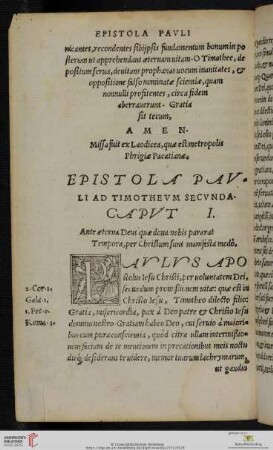 EPISTOLA PAVLI
nicantes, recondentes sibijpsis fundamentum bonum in po
sterum ut apprehendant aeternam uitam. O Timothee, de
positum serua, deuitans prophanas uocum inanitates, &
oppositione falso nominatae scientiae, quam
nonnulli profitentes, circa fidem
aberrauerunt. Gratia
sit tecum,
AMEN.
Missa fuit ex Laodicea, quae est metropolis
Phrigiae Pacatianae.
EPISTOLA PAV-
LI AD TIMOTHEVM SECVNDA.
CAPVT I.
Ante aeterna Deus quae dona nobis pararat
Tempora, per Christum sunt manifesta modò.
PAVLVS APO
stolus Iesu Christi, per uoluntatem Dei,
2. Cor. 1. secundum promissionem uitae quae est in
Gala. 1. Christo Iesu, Timotheo dilecto filio:
Gratia, misericordia, pax à Deo patre & Christo Iesu
Roma. 1. domino nostro. Gratiam habeo Deo, cui seruio à maiori-
bus cum pura conscientia, quòd citra ullam intermissio-
nem faciam de te mentionem in precationibus meis noctu
diuque, desiderans te uidere, memor tuarum lachrymarum,
ut gaudio